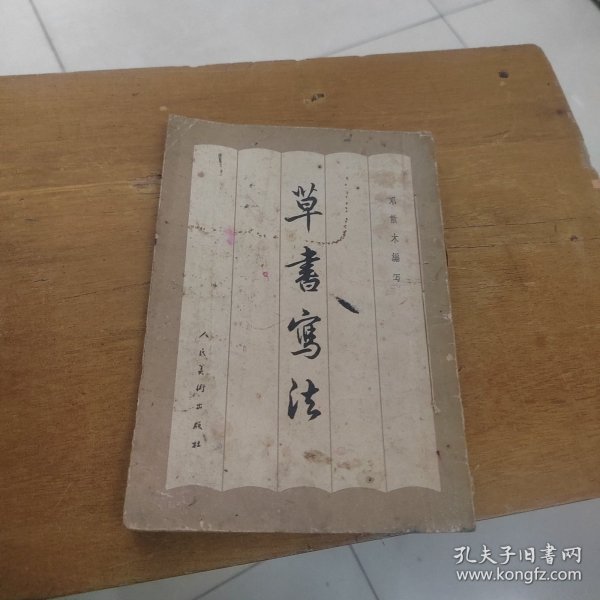 邓散木编写
草書寫法
人民美術出版社
孔夫子旧书网
www.kongfz.com